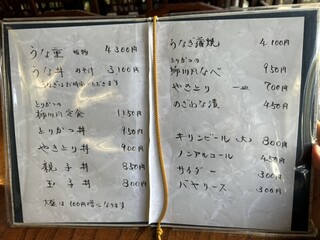 うな重 吸物 4300円
うな丼 みそ汁 3100円
とりかつの
柳川風定食 1150円
とりかつ丼 950円
やきとり丼 900円
親子丼 850円
玉子丼 800円
大盛は100円増になります
うなぎ蒲焼 4100円
とりかつの
柳川風なべ 950円
やきとり 一皿 700円
のざわな漬 450円
キリンビール(大) 800円
ノンアルコール 450円
サイダー 300円
バヤリース 300円